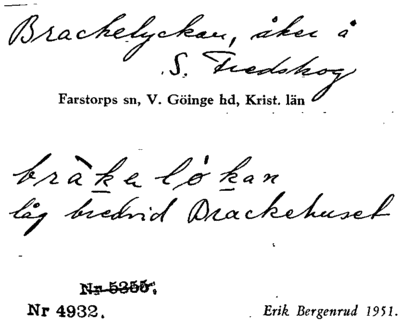 Brackelyckan, åker å
S. Fredskog
Farstorps sn, V. Göinge hd, Krist. län
bràkelokan
låg bredvid Brackehuset
Nr 5355.
Nr 4932.
Erik Bergenrud 1951.